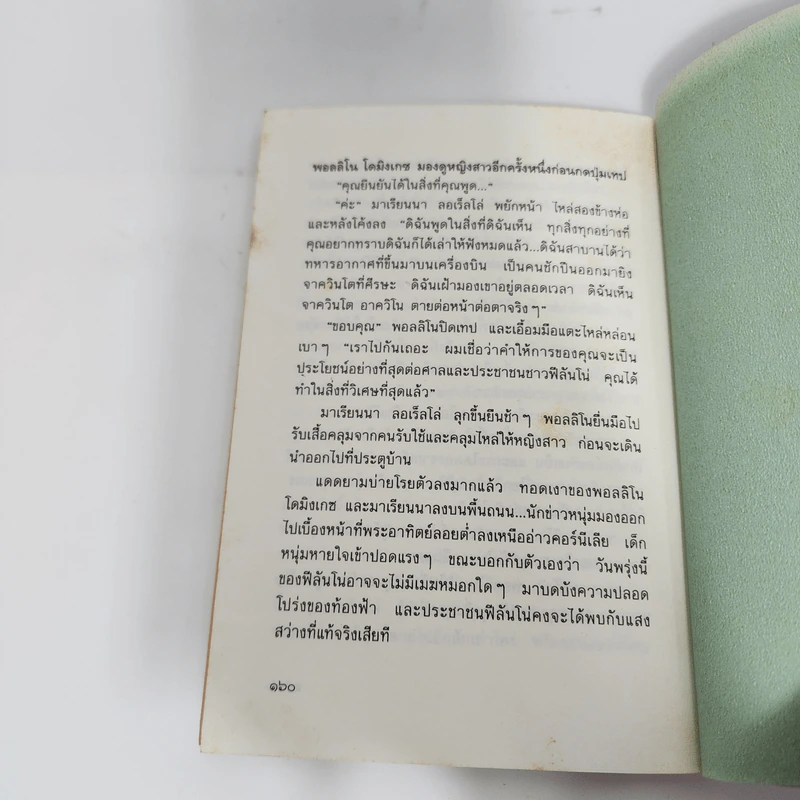 พอลลิโน โดมิงเกซ มองดูหญิงสาวอีกครั้งหนึ่งก่อนกดปุ่มเทป
"คุณยืนยันได้ในสิ่งที่คุณพูด..."
"ค่ะ" มาเรียนนา ลอเร็ลโล่ พยักหน้า ไหล่สองข้างห่อ
และหลังโค้งลง "ดิฉันพูดในสิ่งที่ดิฉันเห็น ทุกสิ่งทุกอย่างที่
คุณอยากทราบดิฉันก็ได้เล่าให้ฟังหมดแล้ว...ดิฉันสาบานได้ว่า
ทหารอากาศที่ขึ้นมาบนเครื่องบิน เป็นคนชักปืนออกมายิง
จาควินโตที่ศีรษะ ดิฉันเฝ้ามองเขาอยู่ตลอดเวลา ดิฉันเห็น
จาควินโต อาควิโน ตายต่อหน้าต่อตาจริงๆ"
"ขอบคุณ" พอลลิโนปิดเทป และเอื้อมมือแตะไหล่หล่อน
เบาๆ "เราไปกันเถอะ ผมเชื่อว่าคำให้การของคุณจะเป็น
ประโยชน์อย่างที่สุดต่อศาลและประชาชนชาวฟิลันโน่ คุณได้
ทำในสิ่งที่วิเศษที่สุดแล้ว"
มาเรียนนา ลอเร็ลโล่ ลุกขึ้นยืนช้าๆ พอลลิโนยื่นมือไป
รับเสื้อคลุมจากคนรับใช้และคลุมไหล่ให้หญิงสาว ก่อนจะเดิน
นำออกไปที่ประตูบ้าน
แดดยามบ่ายโรยตัวลงมากแล้ว ทอดเงาของพอลลิโน
โดมิงเกซ และมาเรียนนาลงบนพื้นถนน...นักข่าวหนุ่มมองออก
ไปเบื้องหน้าที่พระอาทิตย์ลอยต่ำลงเหนืออ่าวคอร์นีเลีย เด็ก
หนุ่มหายใจเข้าปอดแรงๆ ขณะบอกกับตัวเองว่า วันพรุ่งนี้
ของฟิลันโน่อาจจะไม่มีเมฆหมอกใดๆ มาบดบังความปลอด
โปร่งของท้องฟ้า และประชาชนฟิลันโน่คงจะได้พบกับแสง
สว่างที่แท้จริงเสียที
๑๖๐